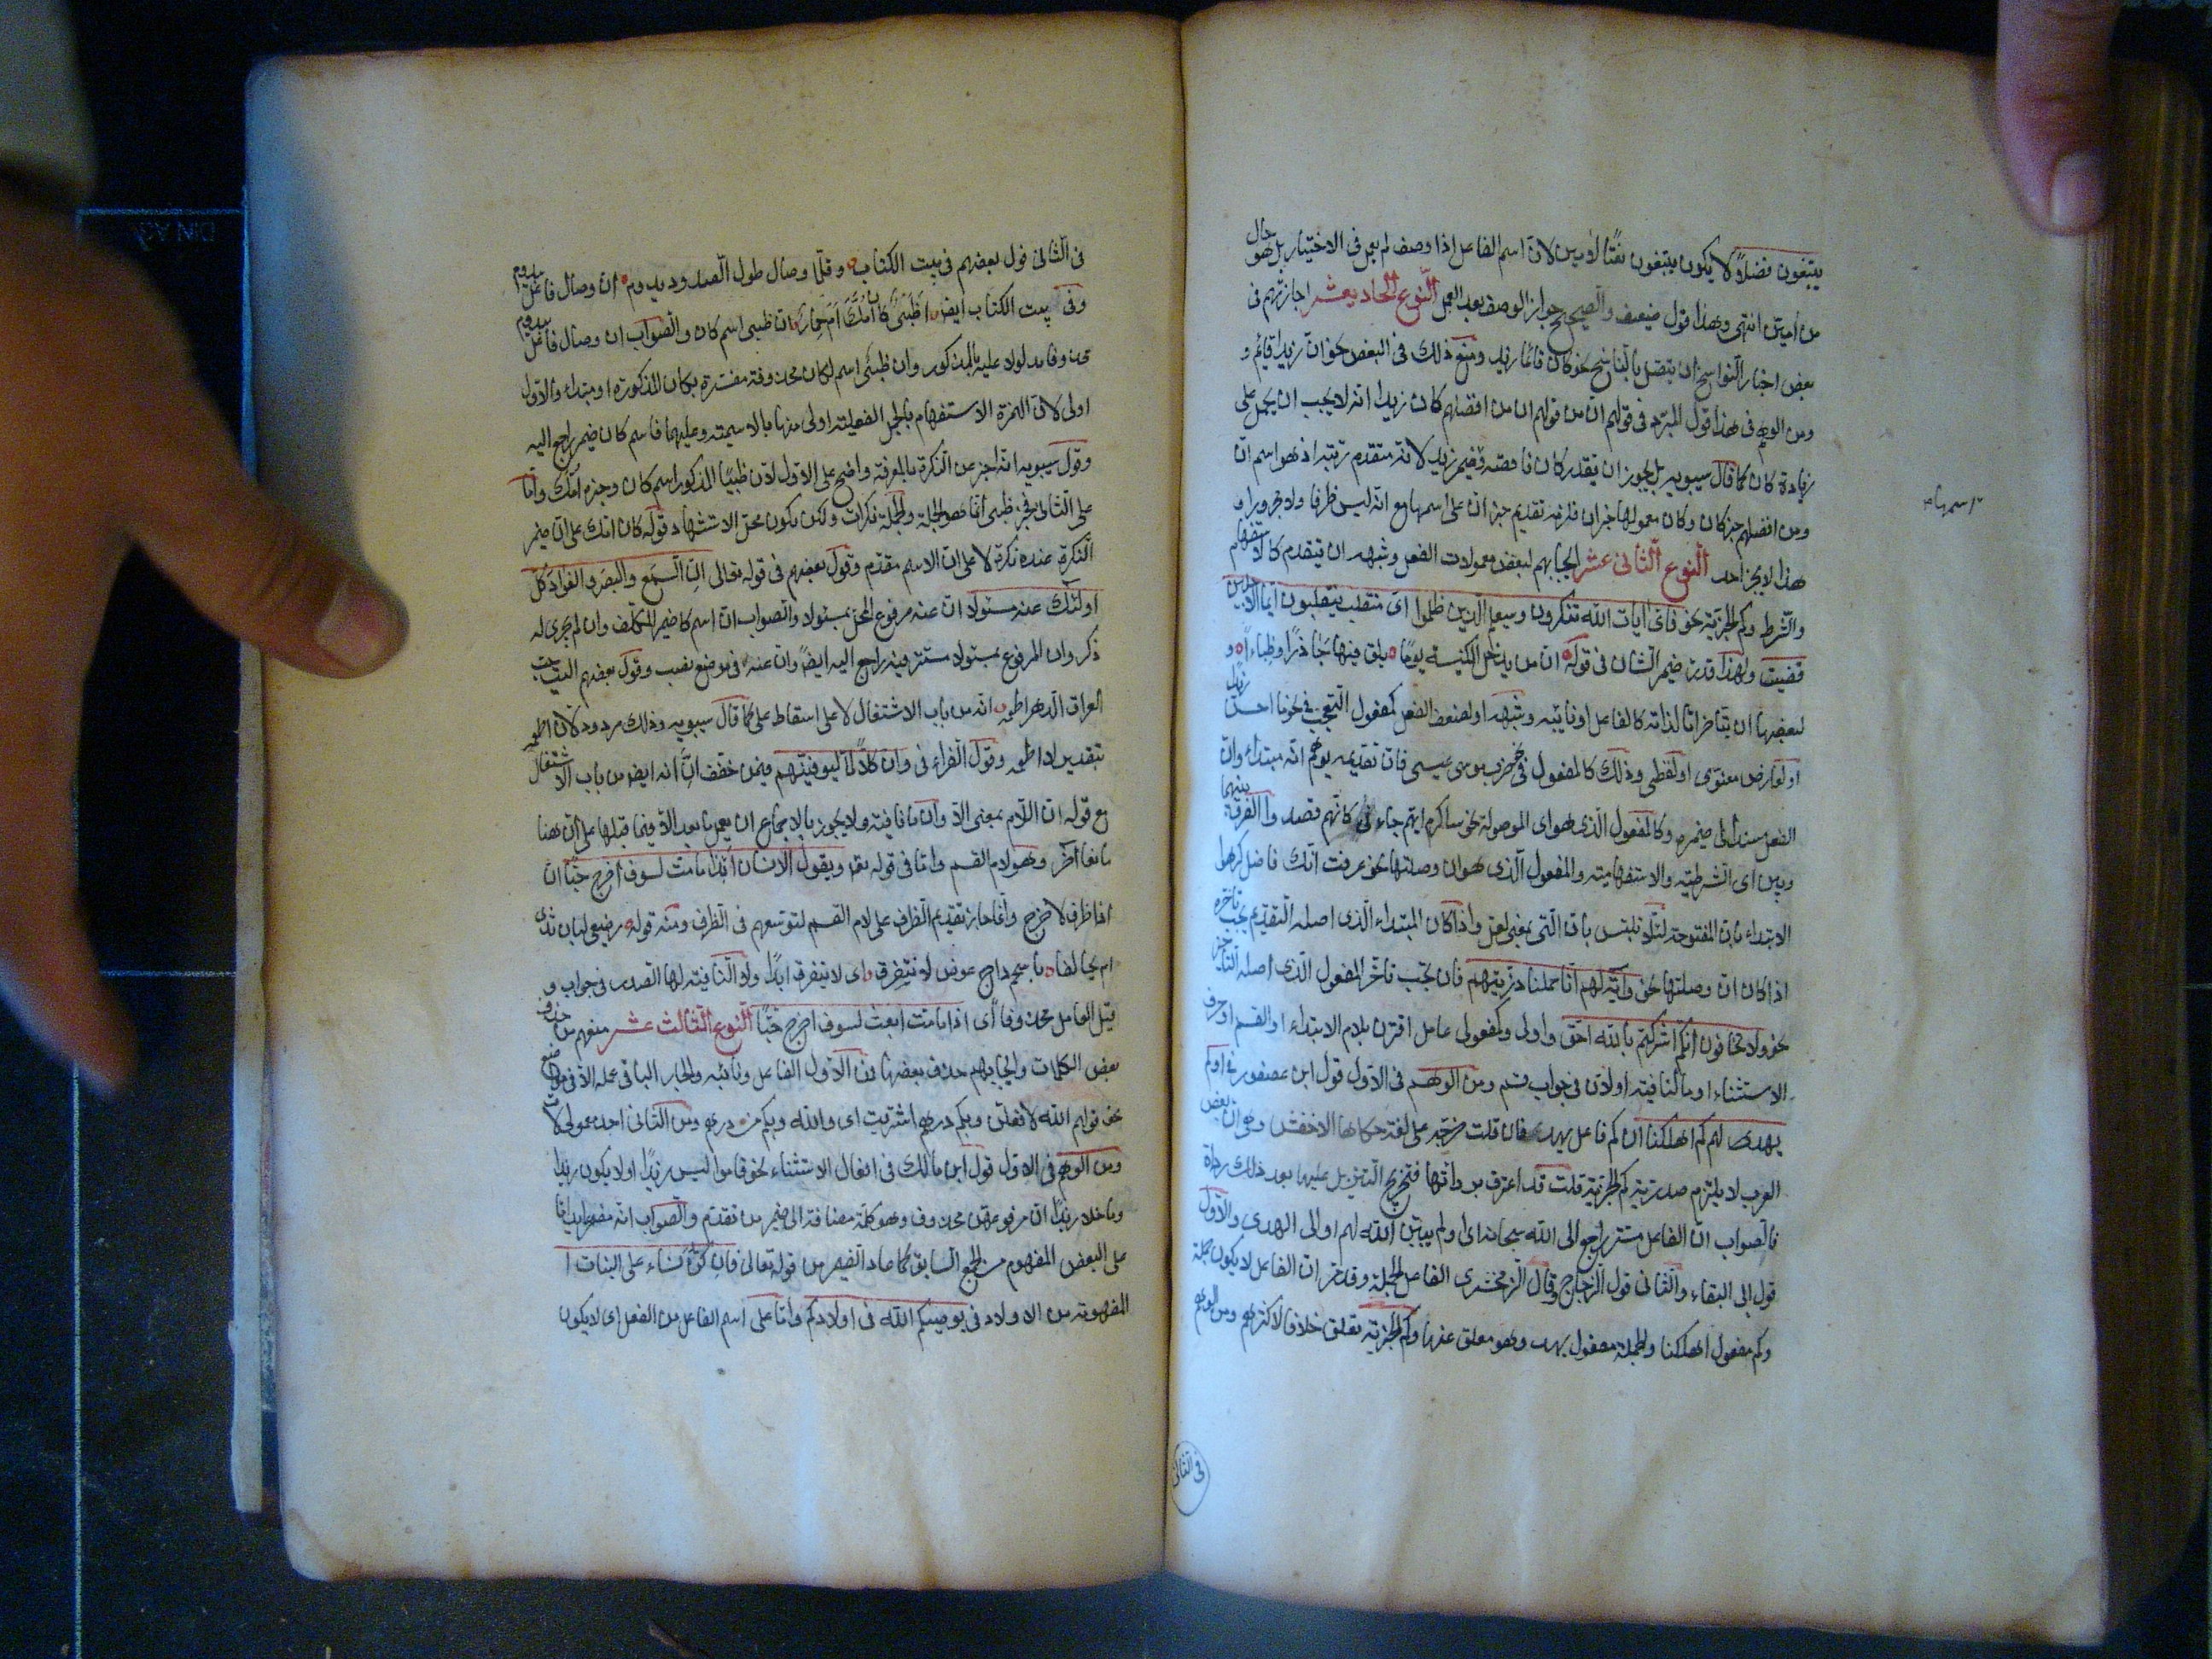 يبتغون فضلا لا يكون يبتغون نعتا لآمين لان اسم الفاعل اذا وصف لم يعمل فى الاختيار بل هو حال
من آمين انتهى وهذا قول ضعيف والصحيح جواز الوصف بعد العمل النوع الحاديعشر اجازتهم فى
بعض اخبار النواسخ ان يتصل بالناسخ نحو كان قائما زيد ومنع ذلك فى البعض نحو ان زيدا قائم و
ومن الوهم فى هذا قول المبرد فى قولهم ان من افضلهم كان زيدا انه لا يجب ان يحمل على
زيادة كان كما قال سيبويه بل يجوز ان تقدر كان ناقصة وضمير زيد لانه متقدم رتبة اذ هو اسم ان
ومن افضلهم خبر كان وكان معمولها خبر ان فلزمه تقديم خبر ان على اسمها مع انه ليس ظرفا ولا مجرورا و
اسمها
هذا لا يجيزه احد النوع الثانى عشر ايجابهم لبعض معمولات الفعل وشبهه ان يتقدم كالاستفهام
والشرط وكم الخبرية نحو فاى آيات الله تنكرون وسيعلم الذين ظلموا اى منقلب ينقلبون ايما الاجلين
قضيت ولهذا قدر ضمير الشان فى قوله ان من يدخل الكنيسة يوما يلق فيها جآذرا وظباء و
لبعضها ان يتاخر اما لذاته كالفاعل او نائبه وشبهه او لضعف الفعل كمفعول التعجب فى نحو ما احسن زيدا
او لعارض معنوى او لفظى وذلك كالمفعول فى نحو ضرب موسى عيسى فان تقديمه يوهم انه مبتداء وان
الفعل مسند الى ضميره وكالمفعول الذى هو اى الموصولة نحو ساكرم ايهم جاءنى كانهم قصدوا الفرق بينهما
وبين اى الشرطية والاستفهامية والمفعول الذى هو ان وصلتها نحو عرفت انك فاضل كرهوا
الابتداء بان المفتوحة لئلا تلتبس بان التى بمعنى لعل واذا كان المبتداء الذى اصله التقديم يجب تاخره
اذا كان ان وصلتها نحو وآية لهم انا حملنا ذريتهم فان يجب تاخر المفعول الذى اصله التاخير
نحو ولا تخافون انكم اشركتم بالله احق واولى وكمفعولى عامل اقترن بلام الابتداء او القسم او حرف
الاستثناء او ما النافية او لا فى جواب قسم ومن الوهم فى الاول قول ابن عصفور فى اولم
يهدى لهم كم اهلكنا ان كم فاعل يهد فان قلت خرجه على لغة حكاها الاخفش وهى ان بعض
العرب لا يلتزم صدرية كم الخبرية قلت قد اعترف برداتها فتخريج التنزيل عليها بعد ذلك رداة
فالصواب ان الفاعل مستتر راجع الى الله سبحانه اى اولم يبين الله لهم او الى الهدى والاول
قول ابى البقاء والثانى قول الزجاج وقال الزمخشرى الفاعل الجملة وقد مر ان الفاعل لا يكون جملة
وكم مفعول اهلكنا والجملة مفعول يهد وهو معلق عنها وكم الخبرية تعلق خلافا لاكثرهم ومن الوهم
فى الثانى
فى الثانى قول بعضهم فى بيت الكتاب وقلما وصال طول الصدود يدوم ان وصال فاعل يدوم
وفى بيت الكتاب ايضا اظبى كان امك ام حمار ان ظبى اسم كان والصواب ان وصال فاعل يدوم
محذوفا مدلولا عليه بالمذكور وان ظبى اسم لكان محذوفة مفسرة بكان المذكورة او مبتداء والاول
اولى لان الهمزة الاستفهام بالجمل الفعلية اولى منها بالاسمية وعليهما فاسم كان ضمير راجع اليه
وقول سيبويه انه اخبر عن النكرة بالمعرفة واضح على الاول لان ظبيا المذكور اسم كان وخبره امك واما
على الثانى فخبر ظبى انما هو الجملة والجملة نكرات ولكن يكون محل الاستشهاد قوله كان امك على ان ضمير
النكرة عنده نكرة لا على ان الاسم مقدم وقول بعضهم فى قوله تعالى ان السمع والبصر والفؤاد كل
اولئك عنه مسئولا ان عنه مرفوع المحل بمسئولا والصواب ان اسم كان ضمير المكلف وان لم يجرى له
ذكر وان المرفوع بمسئولا مستتر فيه راجع اليه ايضا وان عنه فى موضع نصب وقول بعضهم آليت حب
العراق الدهر اطعمه انه من باب الاشتغال لا على اسقاط على كما قال سيبويه وذلك مردود لان اطعمه
بتقدير لا اطعمه وقول الفراء فى وان كلا لما ليوفينهم فيمن خفف ان انه ايضا من باب الاشتغال
مع قوله ان اللام بمعنى الا وان نافية ولا يجوز بالاجماع ان يعمل ما بعد الا فيما قبلها على ان هنا
مانعا آخر وهو لام القسم واما فى قوله تعالى ويقول الانسان أئذا ما مت لسوف اخرج حيا ان
اذا ظرف لاخرج وانما جاز تقديم الظرف على لام القسم لتوسعهم فى الظرف ومنه قوله رضيعى لبان ثدى
ام تحالفا باسحم داج عوض لا نتفرق اى لا نتفرق ابدا ولا النافية لها الصدر فى جواب و
قيل العامل محذوف اى أئذا ما مت ابعث لسوف اخرج حيا النوع الثالث عشر منعهم من حذف
بعض الكلمات وايجابهم حذف بعضها فمن الاول الفاعل ونائبه والجار الباقى عمله الا فى مواضع
نحو قولهم الله لافعلن وبكم درهم اشتريت اى والله وبكم من درهم ومن الثانى احد معمولى لات
ومن الوهم فى الاول قول ابن مالك فى افعال الاستثناء نحو قاموا ليس زيدا او لا يكون زيدا
وما خلا زيدا ان مرفوعهن محذوف وهو كلمة مضافة الى ضمير من تقدم والصواب انه مضمر عايد اما
على البعض المفهوم من الجمع السابق كما عاد الضمير من قوله تعالى فان كن نساء على البنات ا
المفهومة من الاولاد فى يوصيكم الله فى اولادكم واما على اسم الفاعل من الفعل اى لا يكون